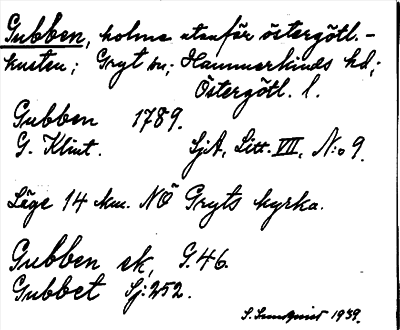 Gubben, holme utanför östergötl.-
kusten; Gryt sn; Hammarkinds hd;
Östergötl. l.
Gubben 1789.
G. Klint. SjA, Litt. VII, N:o 9.
Läge 14 km. NÖ Gryts kyrka.
Gubben ek, G.46.
Gubbet Sj:252.
S. 1939.